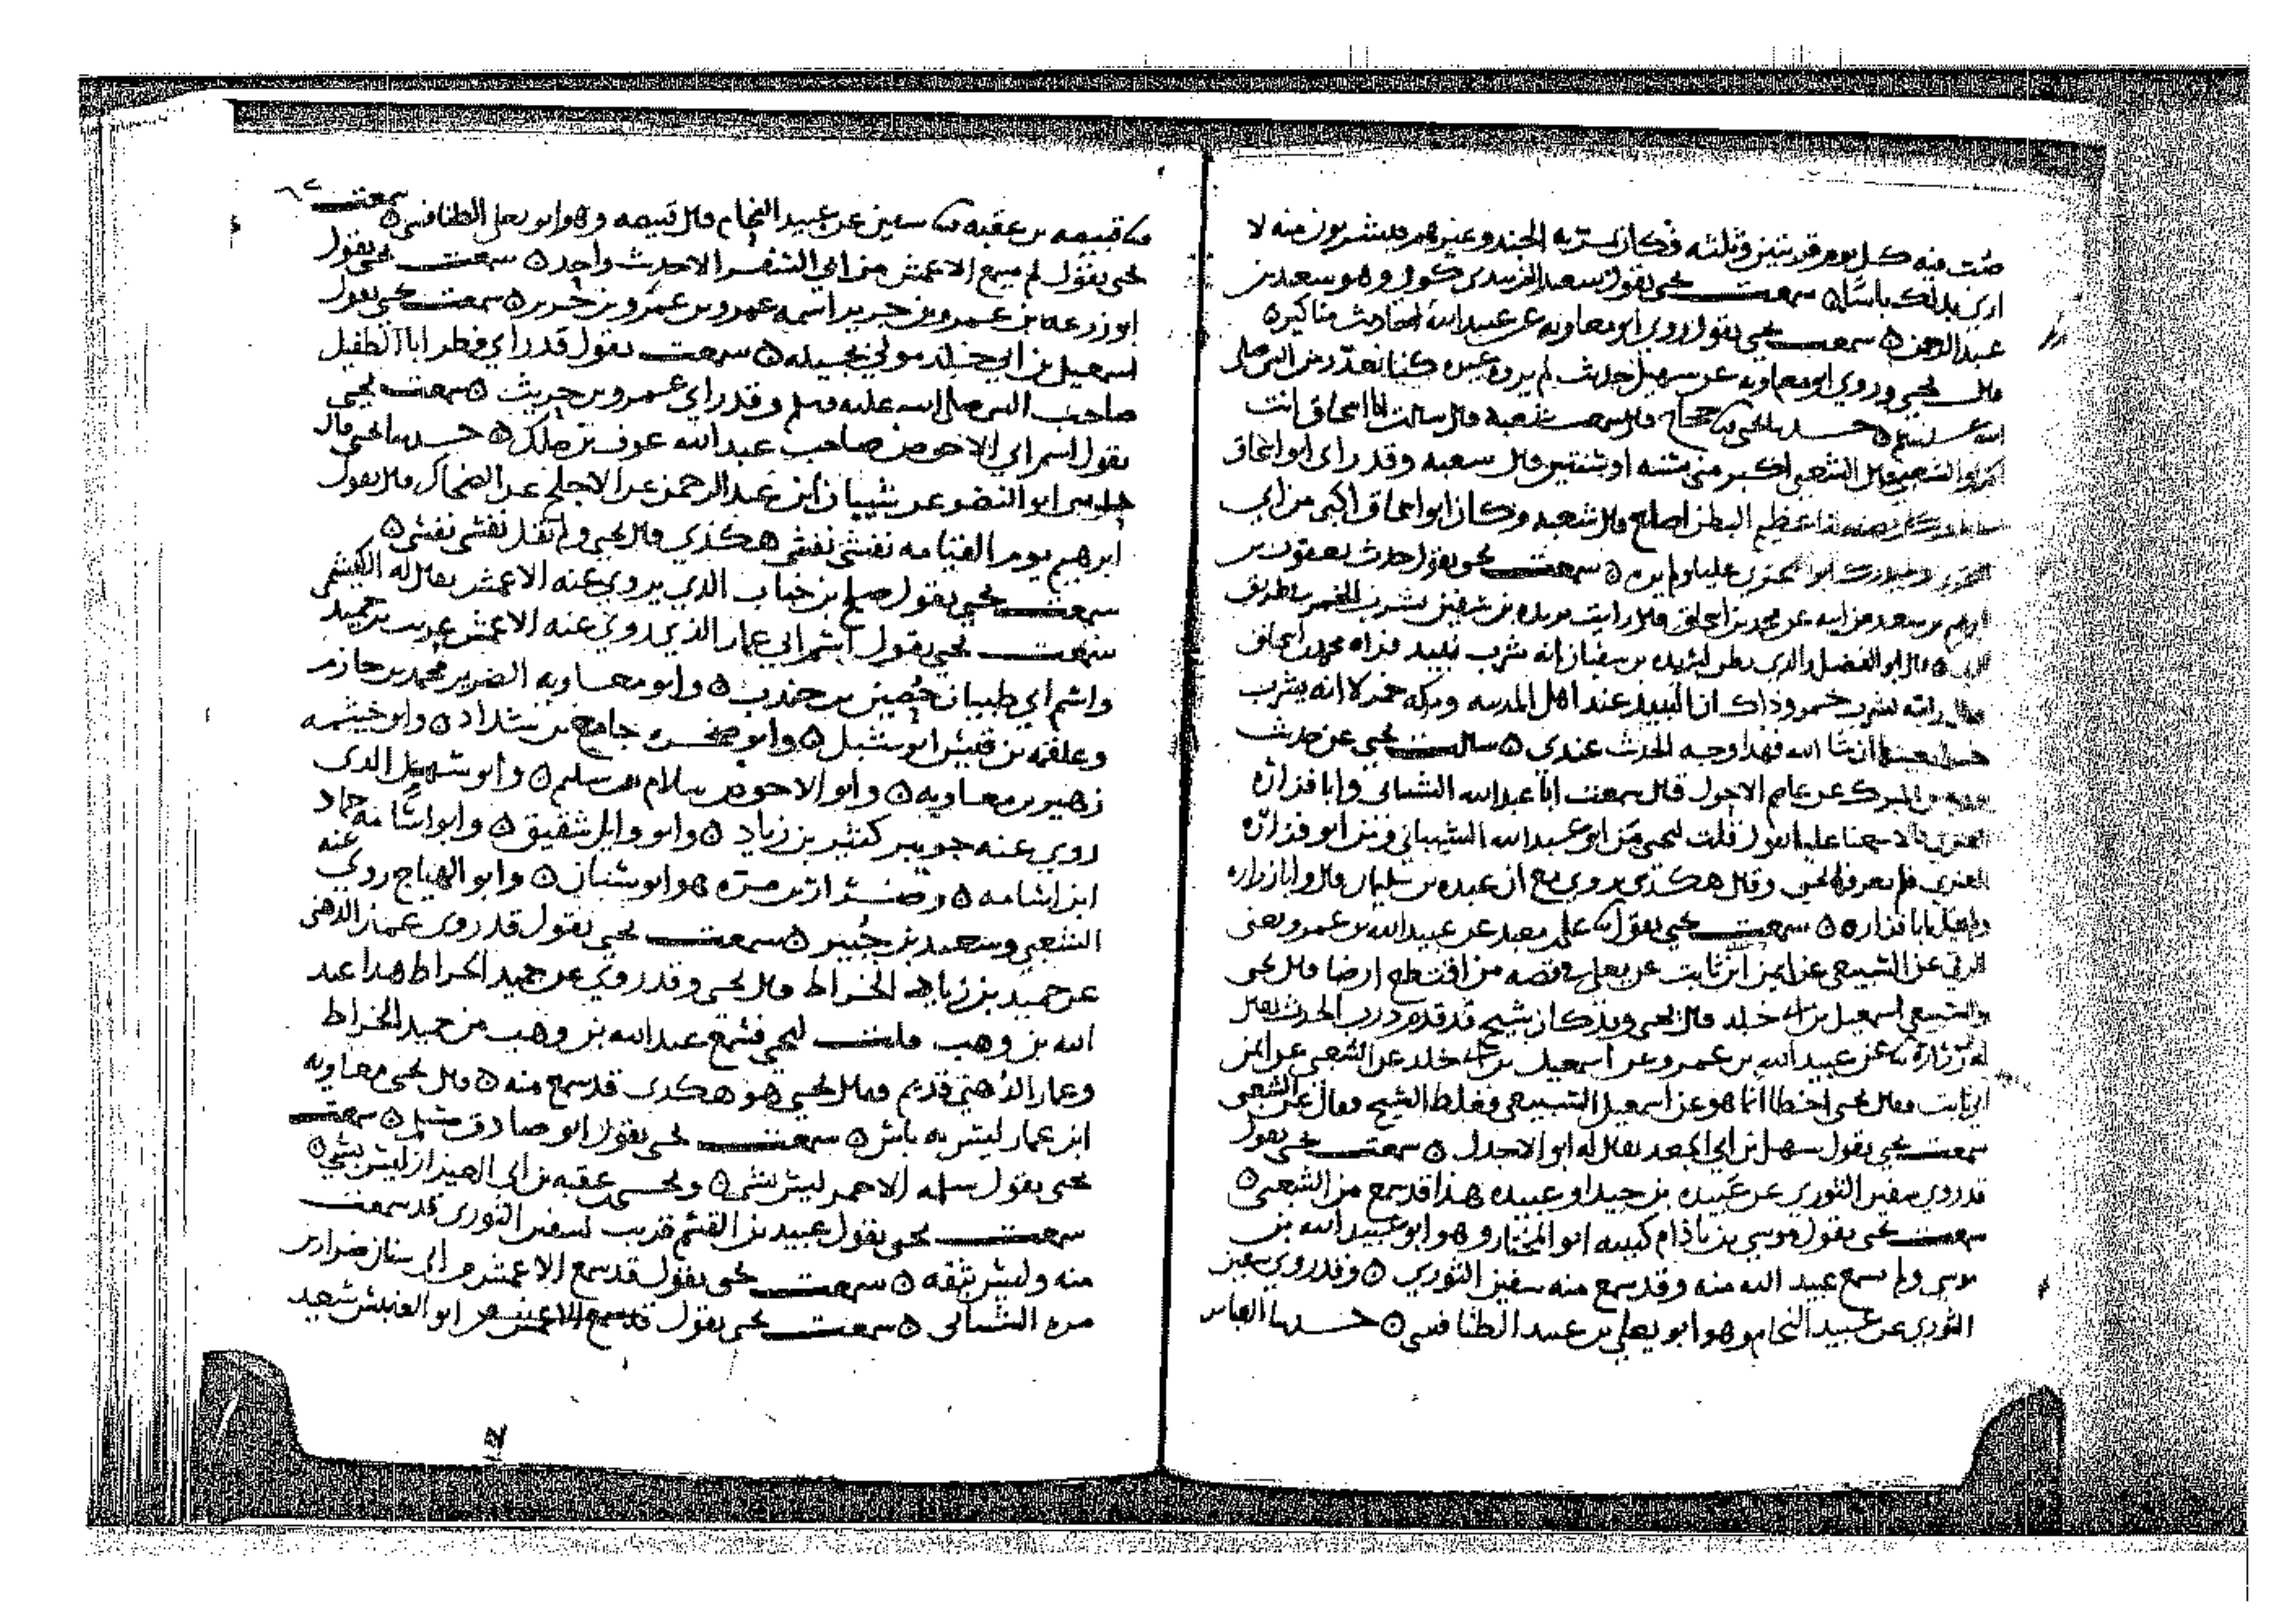 فيه كل يوم قربتين وثلثه فكان يسريه الجند وغيرهم فيشربون منه لا
ارى بذلك باسا ه سمعت يحيى يقول سعيد الزبيدي كوفي وهو سعيد بن
عبد الرحمن ه سمعت يحيى يقول روى ابو معاويه عن عبيد الله احاديث مناكير ه
قال يحيى وروى ابو معاويه عن سهيل حديث لم يروه غيره كنا نعد ورسول الله صلى
الله عليه وسلم ه حدثنا يحيى نا حجاج قال سمعت شعبه قال سالت ابا اسحاق انت
اكبر او الشعبي قال الشعبي اكبر مني بسنه او سنتين قال شعبه وقد راى ابو اسحاق
عليا وكان يصفه لنا عظيم البطن اصلع قال شعبه وكان ابو اسحاق اكبر من ابي
البختري ولم يدرك ابو البختري عليا ولم يره ه سمعت يحيى يقول حدث يعقوب بن
ابرهيم بن سعد عن ابيه عن محمد بن اسحاق قال رايت يزيد بن سفيان يشرب الخمر بطريق
ه قال ابو الفضل والذي يظن ليزيد بن سفيان انه شرب نبيذ فراه محمد بن اسحاق
فقال رايته يشرب خمر وذاك ان النبيذ عند اهل المدينه ومكه خمر لا انه يشرب
خمرا بعينها ان شا الله فهذا وجه الحديث عندي ه سالت يحيى عن حديث
المبرك عن عاصم الاحول قال سمعت ابا عبد الله الشيباني وابا فزاره
العنزي قالا سمعنا عليا يقول قلت ليحيى من ابو عبد الله الشيباني ومن ابو فزاره
العنزي فلم يعرفه يحيى وقال هكذى يروي مع ان عبده بن سليمان قال وابا زراره
ولم يقل ابا فزاره ه سمعت يحيى يقول نا علي بن معبد عن عبيد الله بن عمرو يعني
الرقي عن الشعبي عن ايمن ابن ثابت عن يعلى في قصه من اقتطع ارضا قال يحيى
والشعبي اسمعيل بن ابي خلد قال يحيى وقد كان شيخ قد قدم درب الحدث يقال
له بن زراره نا عن عبيد الله بن عمرو عن اسمعيل بن ابي خلد عن الشعبي عن ايمن
ابن ثابت فقال يحيى اخطا انما هو عن اسمعيل الشعبي فغلط الشيخ فقال عن الشعبي
سمعت يحيى يقول سهل بن ابي الجعد يقال له ابو الاجدل ه سمعت يحيى يقول
قد روى سفين الثوري عن عبيده بن حيدا وعبيده هذا قد سمع من الشعبي ه
سمعت يحيى يقول موسى بن باذام كنيته ابو المختار وهو ابو عبيد الله بن
موسى ولم يسمع عبيد الله منه وقد سمع منه سفين الثوري ه وقد روى سفين
الثوري عن عبيد النحام وهو ابو يعلى بن عبيد الطنافسي ه حدثنا العباس
نا قبيصه بن عقبه نا سفين عن عبيد النحام قال قبيصه وهو ابو يعلى الطنافسي ه سمعت
يحيى يقول لم يسمع الاعمش من ابي السفر الا حديث واحد ه سمعت يحيى يقول
ابو زرعه بن عمرو بن جرير اسمه عمرو بن عمرو بن جرير ه سمعت يحيى يقول
اسمعيل بن ابي خلد مولى بجيله ه سمعت يقول قد راى فطر ابا الطفيل
صاحب النبي صلى الله عليه وسلم وقد راى عمرو بن حريث ه سمعت يحيى
يقول اسم ابي الاحوص صاحب عبد الله عوف بن ملك ه حدثنا يحيى قال
حدثنا ابو النضر عن شيبان ابن عبد الرحمن عن الاجلح عن الضحاك قال يقول
ابرهيم يوم القيامه نفشي نفشي هكذى قال يحيى ولم تقل نفسي نفسي ه
سمعت يحيى يقول صلح بن خباب الذي يروي عنه الاعمش يقال له الكيشمي
سمعت يحيى يقول اسم ابي عمار الذي روى عنه الاعمش عريب بن حميد
واسم ابي ظبيان حصين بن جندب ه وابو معاويه الضرير محمد بن حازم
وعلقمه بن قيس ابو شبل ه وابو صخره جامع بن شداد ه وابو خيثمه
زهير بن معاويه ه وابو الاحوص سلام بن سليم ه وابو سهيل الذي
روى عنه جويبر كثير بن زياد ه وابو وايل شقيق ه وابو اسامه حماد
ابن اسامه ه وضرار بن مره هو ابو سنان ه وابو الهياج روى عنه
الشعبي وسعيد بن جبير ه سمعت يحيى يقول قد روى عمار الدهني
عن حميد بن زياد الخراط قال يحيى وقد روى عن حميد الخراط هذا عبد
الله بن وهب قلت ليحيى فسمع عبد الله بن وهب من حميد الخراط
وعمار الدهني قديم فقال يحيى هو هكذى قد سمع منه ه قال يحيى معاويه
ابن عمار ليس به باس ه سمعت يحيى يقول ابو صادق مسلم ه سمعت
يحيى يقول سلمه الاحمر ليس بشي ه ويحيى عقبه بن ابي العيزار ليس بشي ه
سمعت يحيى يقول عبيد بن القسم قريب لسفين الثوري قد سمعت
منه وليس بثقه ه سمعت يحيى يقول قد سمع الاعمش من ابي سنان ضرار بن
مره الشيباني ه سمعت يحيى يقول ابو العنبس سعيد